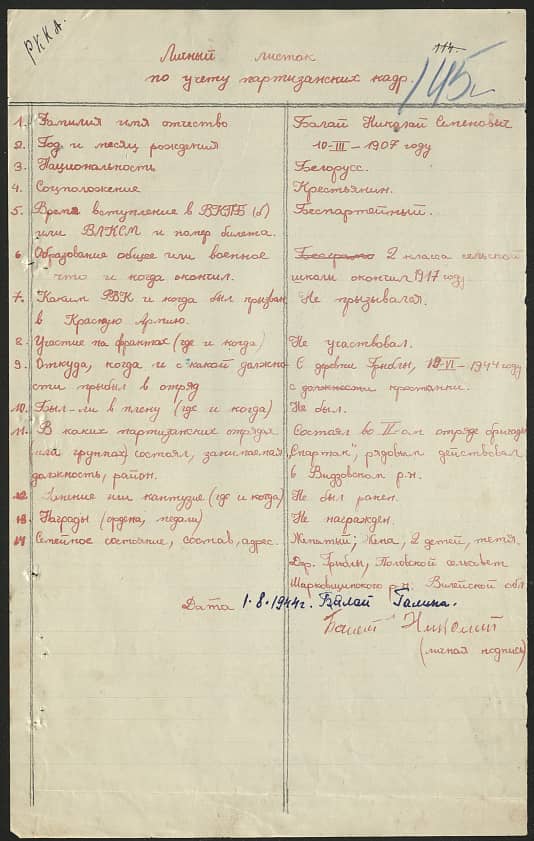 РККА.
114.
145
Личный листок
по учету партизанских кадр.
1. Фамилия имя отчество Балай Николай Семенович
2. Год и месяц рождения 10-III-1907 году
3. Национальность Белорусс.
4. Соцположение Крестьянин.
5. Время вступление в ВКПБ(б) Беспартейный.
или ВЛКСМ и номер билета.
6. Образование общее или военное 2 класса сельской
что и когда окончил. школы окончил 1917 году.
7. Каким РВК и когда был призван Не призывался.
в Красную Армию.
8. Участие на фрактах (где и когда) Не участвовал.
9. Откуда, когда и с какой должно- С деревни Грибли, -VI-1944 году
сти прибыл в отряд с должности крестьянин.
10. Был-ли в плену (где и когда) Не был.
11. В каких партизанских отрядах Состоял во II-ом отряде бригады
(или группах) состоял, занимаемая „Спартак", рядовым действовал
должность, район. в Видзовском р-н.
12. или кантузие (где и когда) Не был ранен.
13. Награды (ордена, медали) Не награжден.
14. Семейное состояние, состав, адрес. Женатый; Жена, 2 детей, тетя.
Дер. Грибли, сельсовет
р-н. Вилейской обл.
Дата 1.8.1944г. Балай Галина.
Балай Николай
(личная подпись)